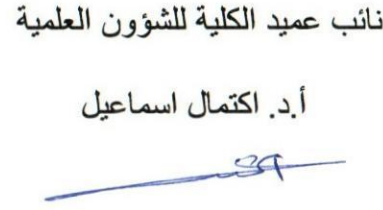 نائب عميد الكلية للشؤون العلمية
أ.د. اكتمال اسماعيل